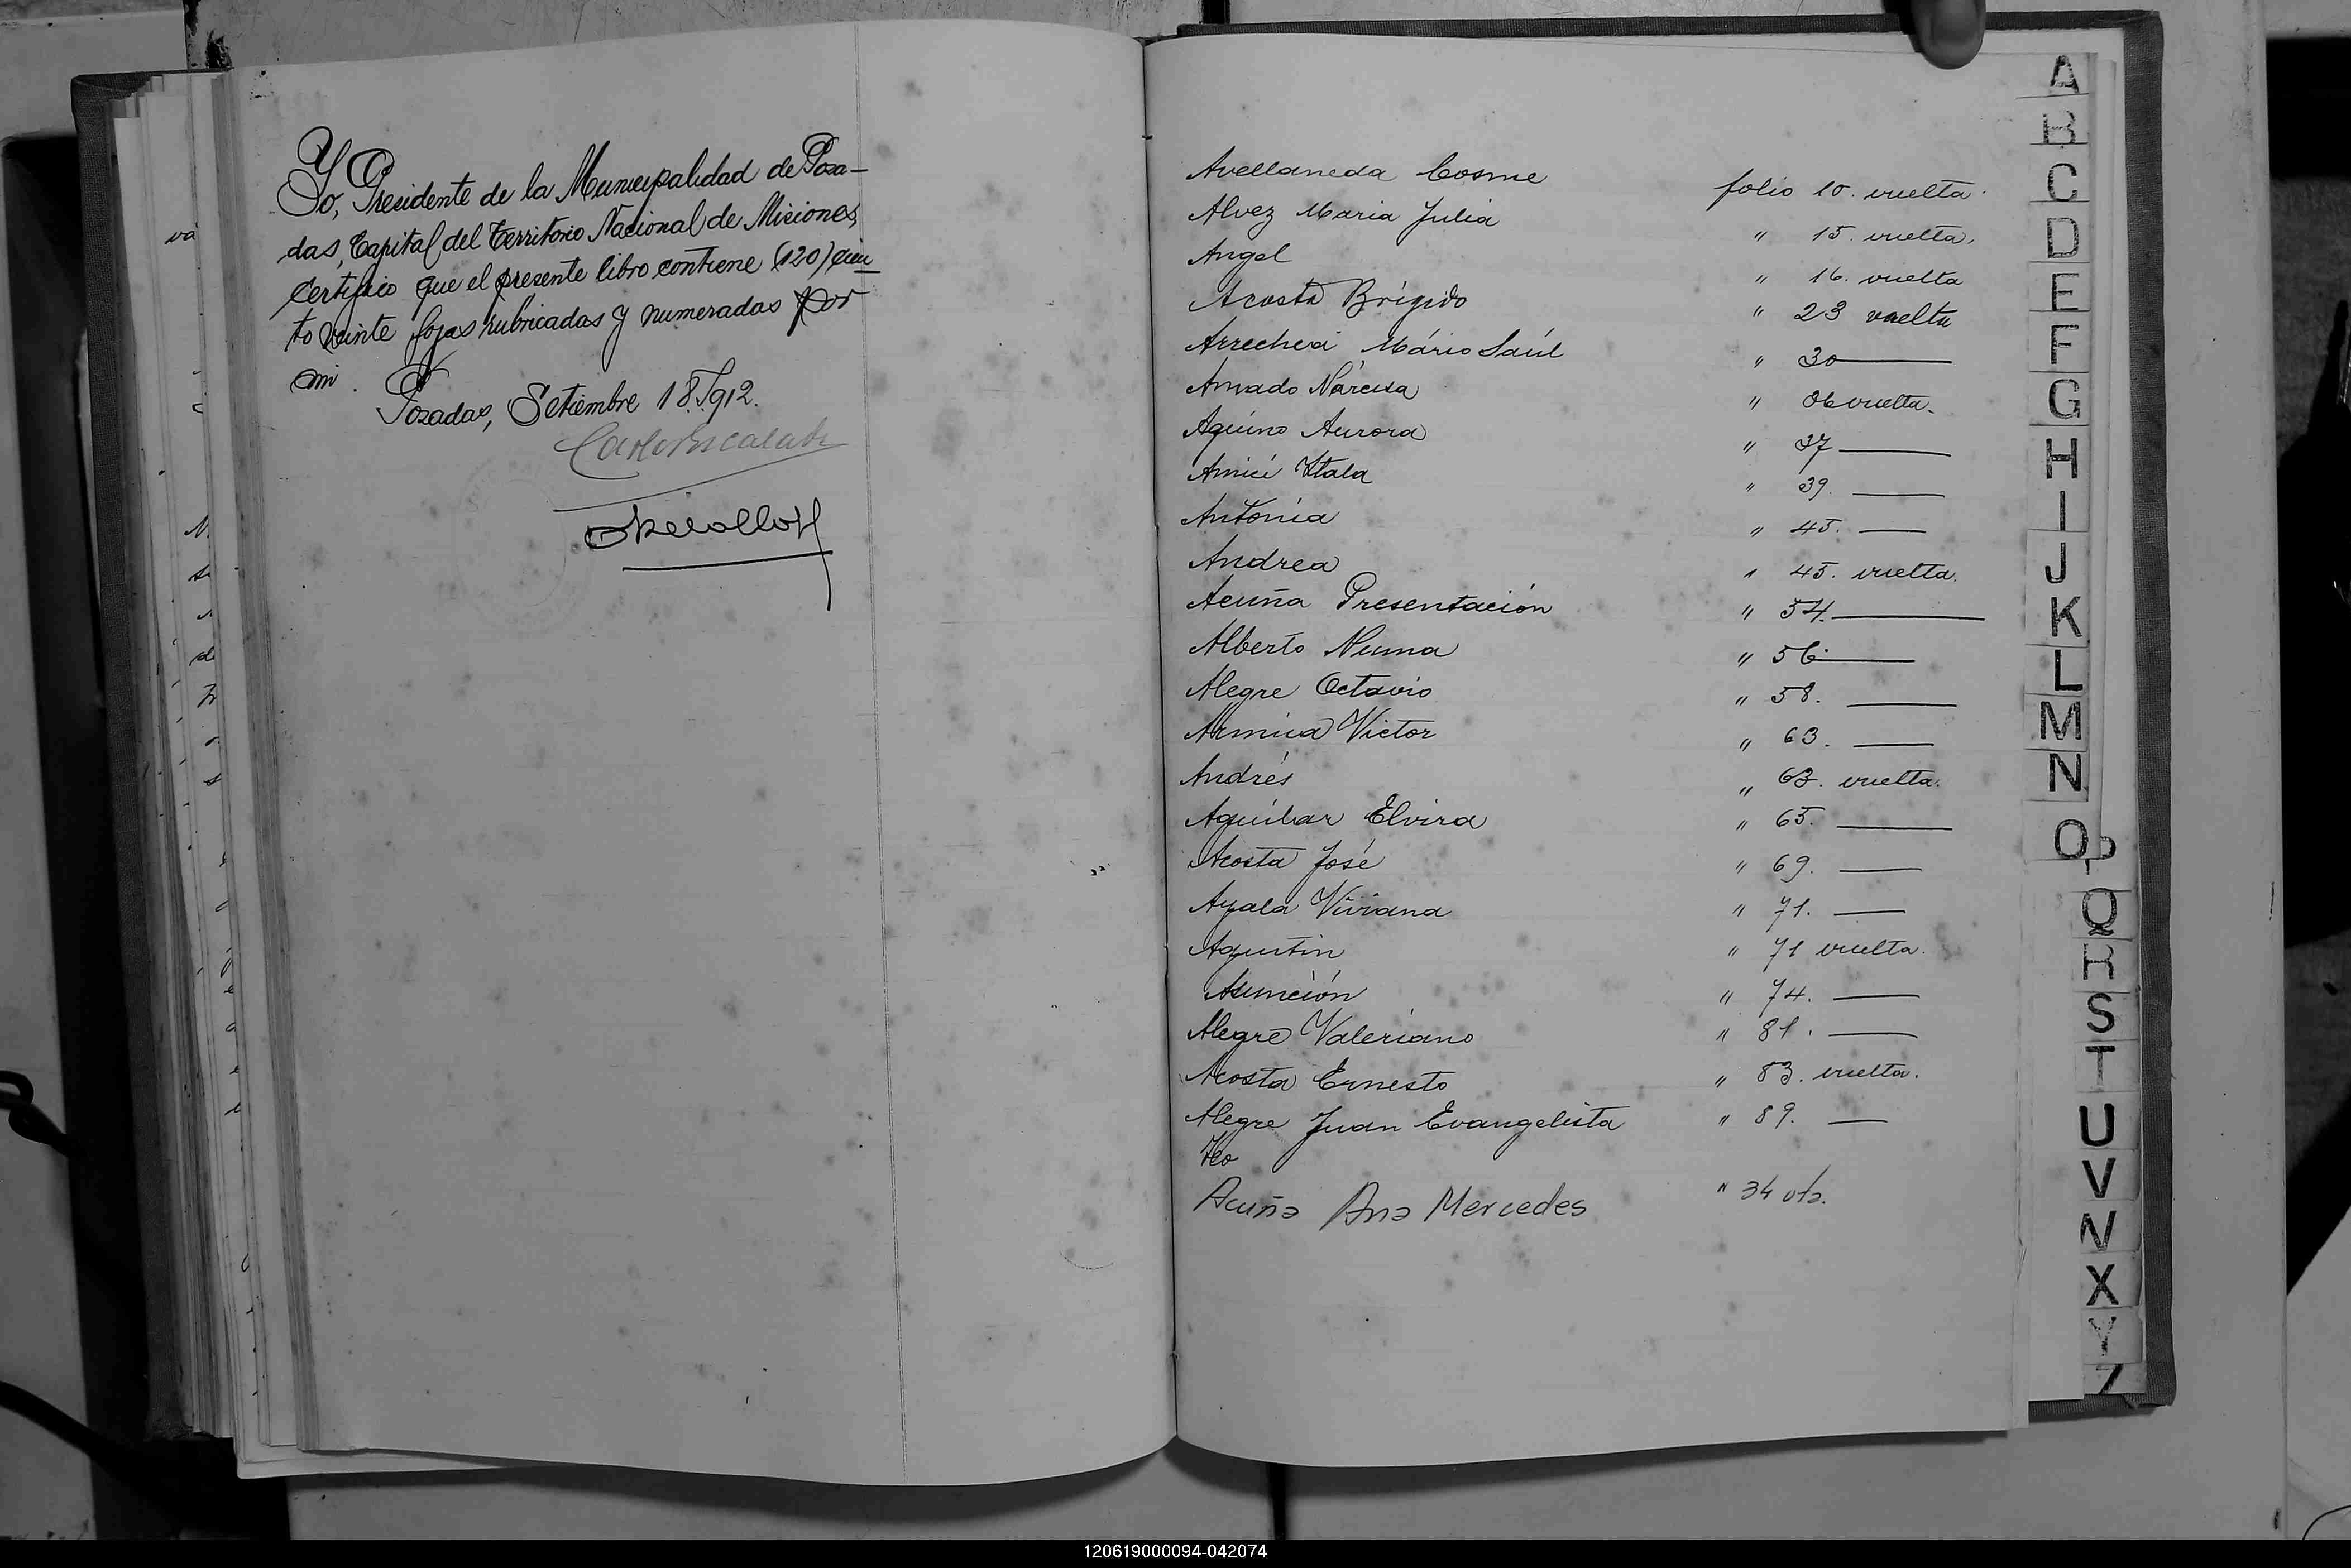 Yo, Presidente de la Municipalidad de Posa-
das, Capital del Territorio Nacional de Misiones,
certifico que el presente libro contiene (120) cien
to veinte fojas rubricadas y numeradas por
mi.
Posadas, Setiembre 18 1912.
Avellaneda Cosme folio 10. vuelta.
Alvez Maria Julia " 15. vuelta.
Angel " 16. vuelta
Acosta Brígido " 23 vuelta
Arrechea Mário Saúl " 30
Amado Narcisa " 36 vuelta.
Aquino Aurora " 37
Amici Itala " 39.
Antónia " 45.
Andrea " 45. vuelta.
Acuña Presentación " 54.
Alberto Numa " 56
Alegre Octavio " 58.
Armúa Victor " 63.
Andrés " 63. vuelta.
Aguilar Elvira " 65.
Acosta José " 69.
Ayala Viviana " 71.
Agustin " 71 vuelta.
Asunción " 74.
Alegre Valeriano " 81.
Acosta Ernesto " 83. vuelta.
Alegre Juan Evangelista " 89.
Acuña Ana Mercedes " 34 vta.
A
B
C
D
E
F
G
H
I
J
K
L
M
N
O
P
Q
R
S
T
U
V
X
Y
Z
120619000094-042074